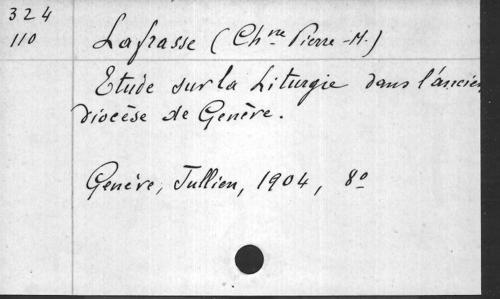 324
110
Lafrasse (Chne Pierre-M.)
Etude sur la Liturgie dans l'ancien
diocèse de Genève.
Genève, Jullien, 1904, 8o